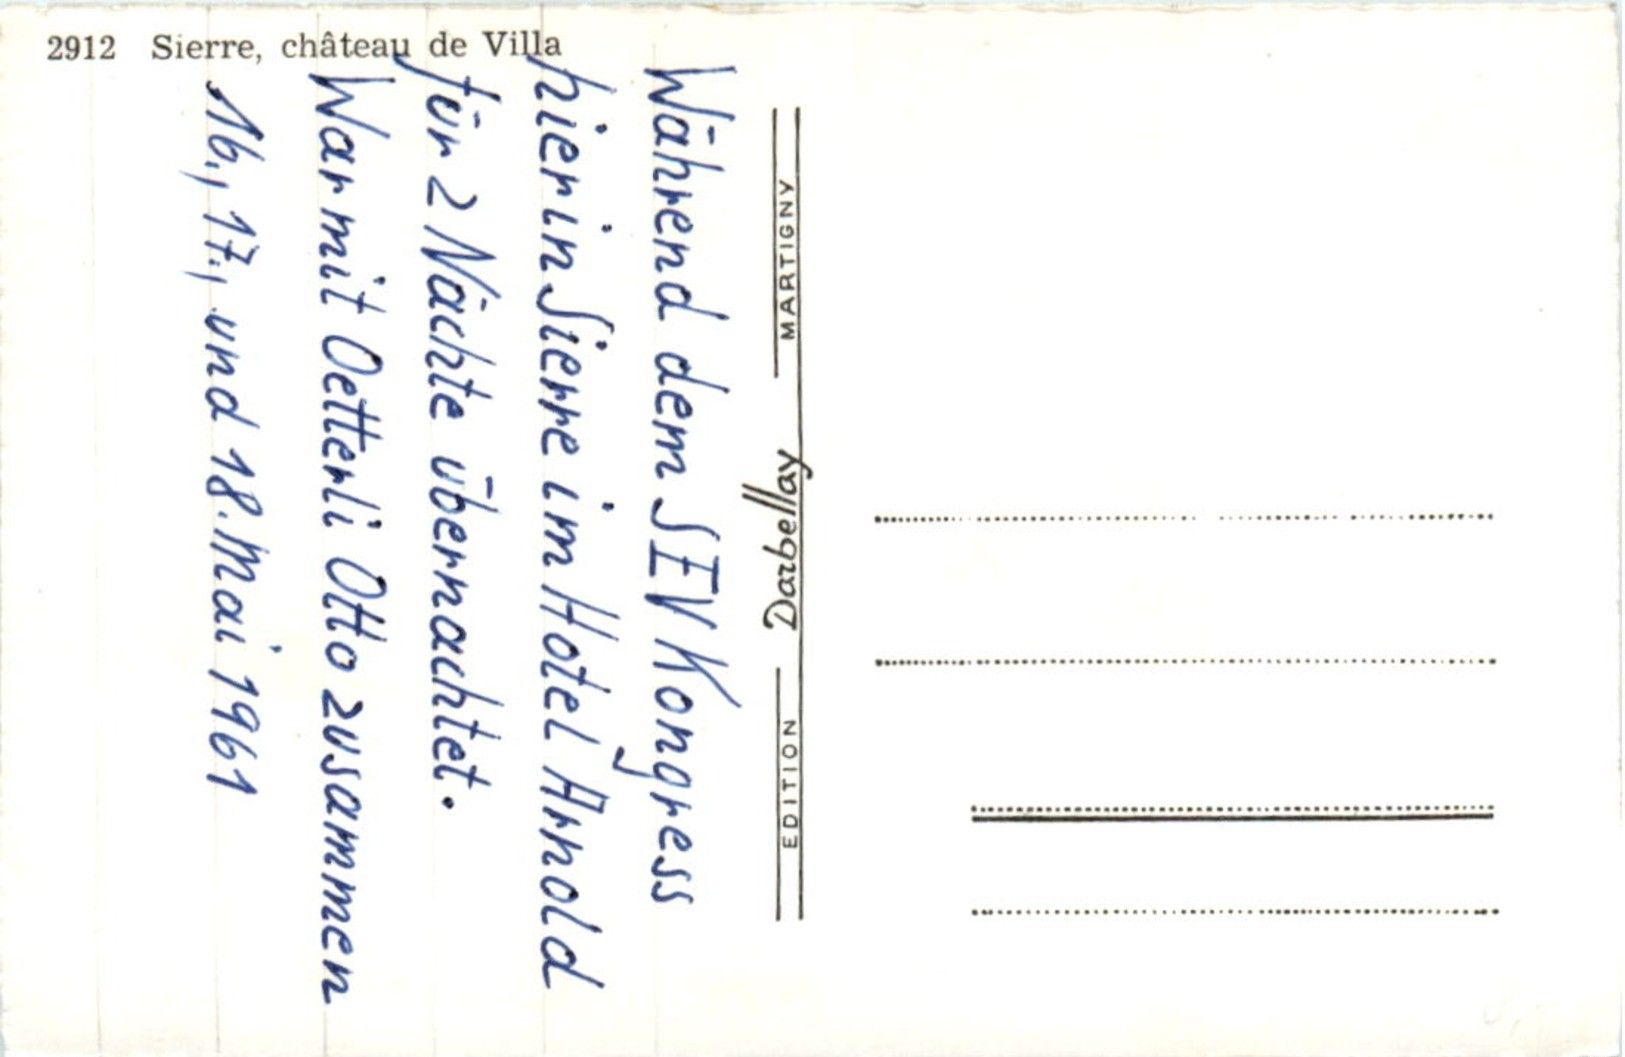 2912 Sierre, château de Villa
Während dem SEV Kongress
hier in Sierre im Hotel Arnold
für 2 Nächte übernachtet.
War mit Oetterli Otto zusammen
16., 17., und 18. Mai 1961
EDITION Darbellay MARTIGNY